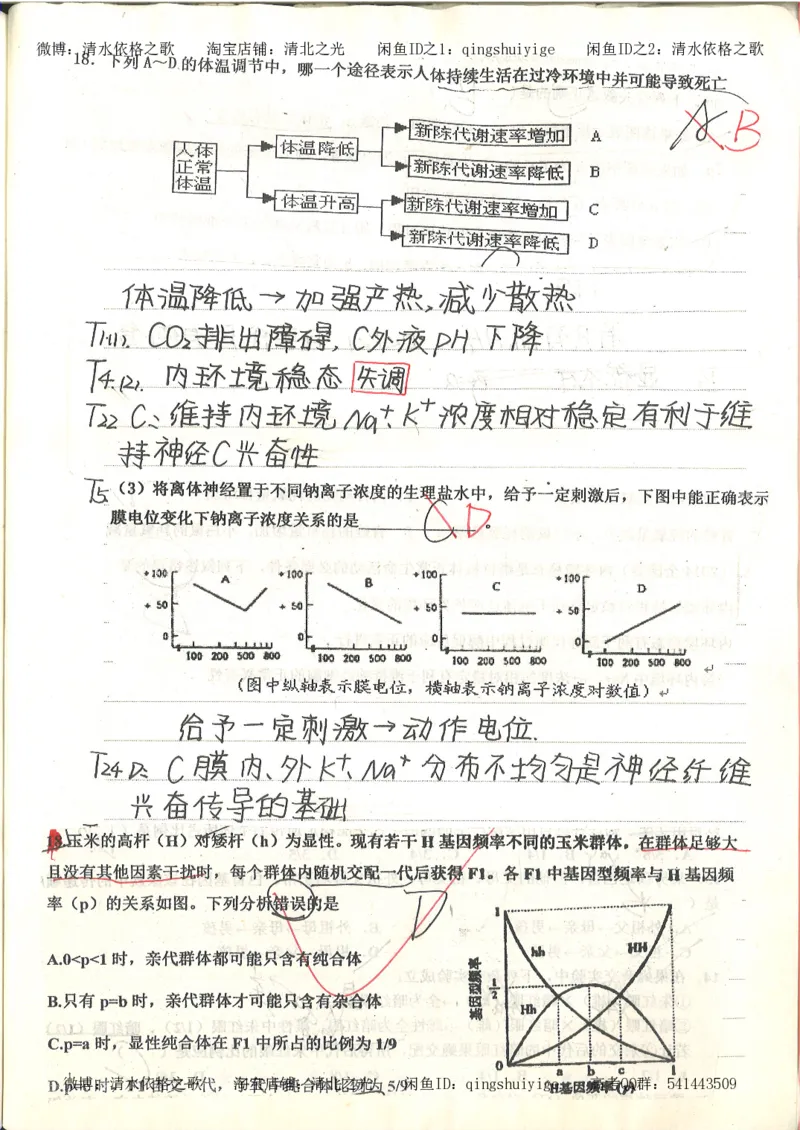 微博：清水依格之歌 淘宝店铺：清北之光 闲鱼ID之1：qingshuiyige 闲鱼ID之2：清水依格之歌
18. 下列A～D的体温调节中，哪一个途径表示人体持续生活在过冷环境中并可能导致死亡
A B
人体正常体温
体温降低
体温升高
新陈代谢速率增加 A
新陈代谢速率降低 B
新陈代谢速率增加 C
新陈代谢速率降低 D
体温降低→加强产热,减少散热
T1(1). CO₂排出障碍, C外液pH下降
T4.(2). 内环境稳态失调
T22 C: 维持内环境Na⁺、K⁺浓度相对稳定有利于维
持神经C兴奋性
T5 （3）将离体神经置于不同钠离子浓度的生理盐水中，给予一定刺激后，下图中能正确表示
膜电位变化下钠离子浓度关系的是 C D 。
+100 +50 0 A 100 200 500 800
+100 +50 0 B 100 200 500 800
+100 +50 0 C 100 200 500 800
+100 +50 0 D 100 200 500 800
（图中纵轴表示膜电位，横轴表示钠离子浓度对数值）
给予一定刺激→动作电位.
T24 D: C膜内、外K⁺、Na⁺分布不均匀是神经纤维
兴奋传导的基础
13.玉米的高杆（H）对矮杆（h）为显性。现有若干H基因频率不同的玉米群体，在群体足够大
且没有其他因素干扰时，每个群体内随机交配一代后获得F1。各F1中基因型频率与H基因频
率（p）的关系如图。下列分析错误的是 D
A.0<p<1时，亲代群体都可能只含有纯合体
B.只有p=b时，亲代群体才可能只含有杂合体
C.p=a时，显性纯合体在F1中所占的比例为1/9
基因型频率
1 1/2 0 hh HH Hh a b c 1
H基因频率(p)
微博：清水依格之歌 淘宝店铺：清北之光 闲鱼ID：qingshuiyige QQ群：541443509